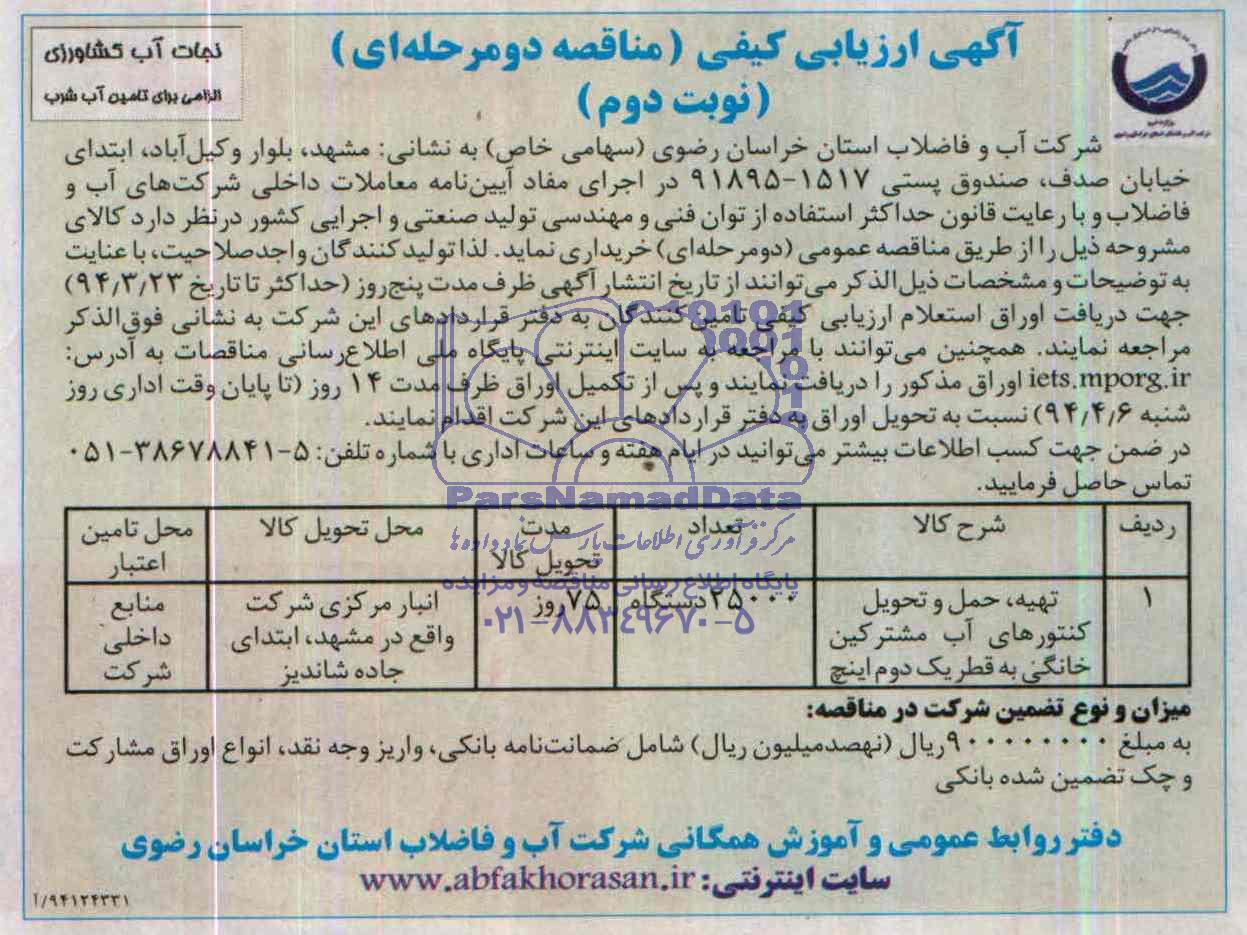 آگهی ارزیابی کیفی (مناقصه دومرحله‌ای)
(نوبت دوم)
نجات آب کشاورزی
الزامی برای تامین آب شرب
شرکت آب و فاضلاب استان خراسان رضوی (سهامی خاص) به نشانی: مشهد، بلوار وکیل‌آباد، ابتدای
خیابان صدف، صندوق پستی ۱۵۱۷-۹۱۸۹۵ در اجرای مفاد آیین‌نامه معاملات داخلی شرکت‌های آب و
فاضلاب و با رعایت قانون حداکثر استفاده از توان فنی و مهندسی تولید صنعتی و اجرایی کشور درنظر دارد کالای
مشروحه ذیل را از طریق مناقصه عمومی (دومرحله‌ای) خریداری نماید. لذا تولیدکنندگان واجدصلاحیت، با عنایت
به توضیحات و مشخصات ذیل‌الذکر می‌توانند از تاریخ انتشار آگهی ظرف مدت پنج‌روز (حداکثر تا تاریخ ۹۴/۳/۲۳)
جهت دریافت اوراق استعلام ارزیابی کیفی تامین‌کنندگان به دفتر قراردادهای این شرکت به نشانی فوق‌الذکر
مراجعه نمایند. همچنین می‌توانند با مراجعه به سایت اینترنتی پایگاه ملی اطلاع‌رسانی مناقصات به آدرس:
iets.mporg.ir اوراق مذکور را دریافت نمایند و پس از تکمیل اوراق ظرف مدت ۱۴ روز (تا پایان وقت اداری روز
شنبه ۹۴/۴/۶) نسبت به تحویل اوراق به دفتر قراردادهای این شرکت اقدام نمایند.
در ضمن جهت کسب اطلاعات بیشتر می‌توانید در ایام هفته و ساعات اداری با شماره تلفن: ۵-۳۸۶۷۸۸۴۱-۰۵۱
تماس حاصل فرمایید.
ParsNamadData
مرکز فرآوری اطلاعات پارس نماد داده‌ها
پایگاه اطلاع رسانی مناقصه و مزایده
۰۲۱-۸۸۳۴۹۶۷۰-۵
ردیف شرح کالا تعداد مدت تحویل کالا محل تحویل کالا محل تامین اعتبار
۱ تهیه، حمل و تحویل کنتورهای آب مشترکین خانگی به قطر یک دوم اینچ ۲۵۰۰۰دستگاه ۷۵روز انبار مرکزی شرکت واقع در مشهد، ابتدای جاده شاندیز منابع داخلی شرکت
میزان و نوع تضمین شرکت در مناقصه:
به مبلغ ۹۰۰۰۰۰۰۰۰ریال (نهصدمیلیون ریال) شامل ضمانت‌نامه بانکی، واریز وجه نقد، انواع اوراق مشارکت
و چک تضمین شده بانکی
دفتر روابط عمومی و آموزش همگانی شرکت آب و فاضلاب استان خراسان رضوی
سایت اینترنتی: www.abfakhorasan.ir
۹۴۱۲۴۳۳۱/آ